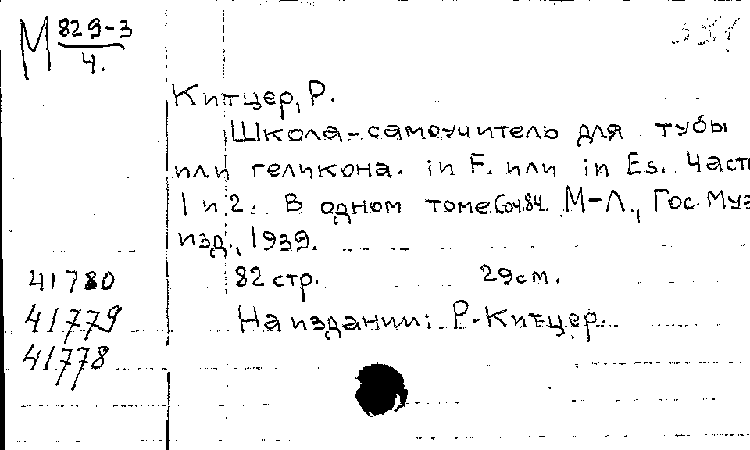 М 829-3
4.
Китцер, Р.
Школа-самоучитель для тубы
или геликона. in F. или in Es. Част
1 и 2. В одном томе. Соч.84. М-Л., Гос. Муз
изд., 1939.
82 стр. 29см.
На издании: Р. Китцер.
41780
41779
41778